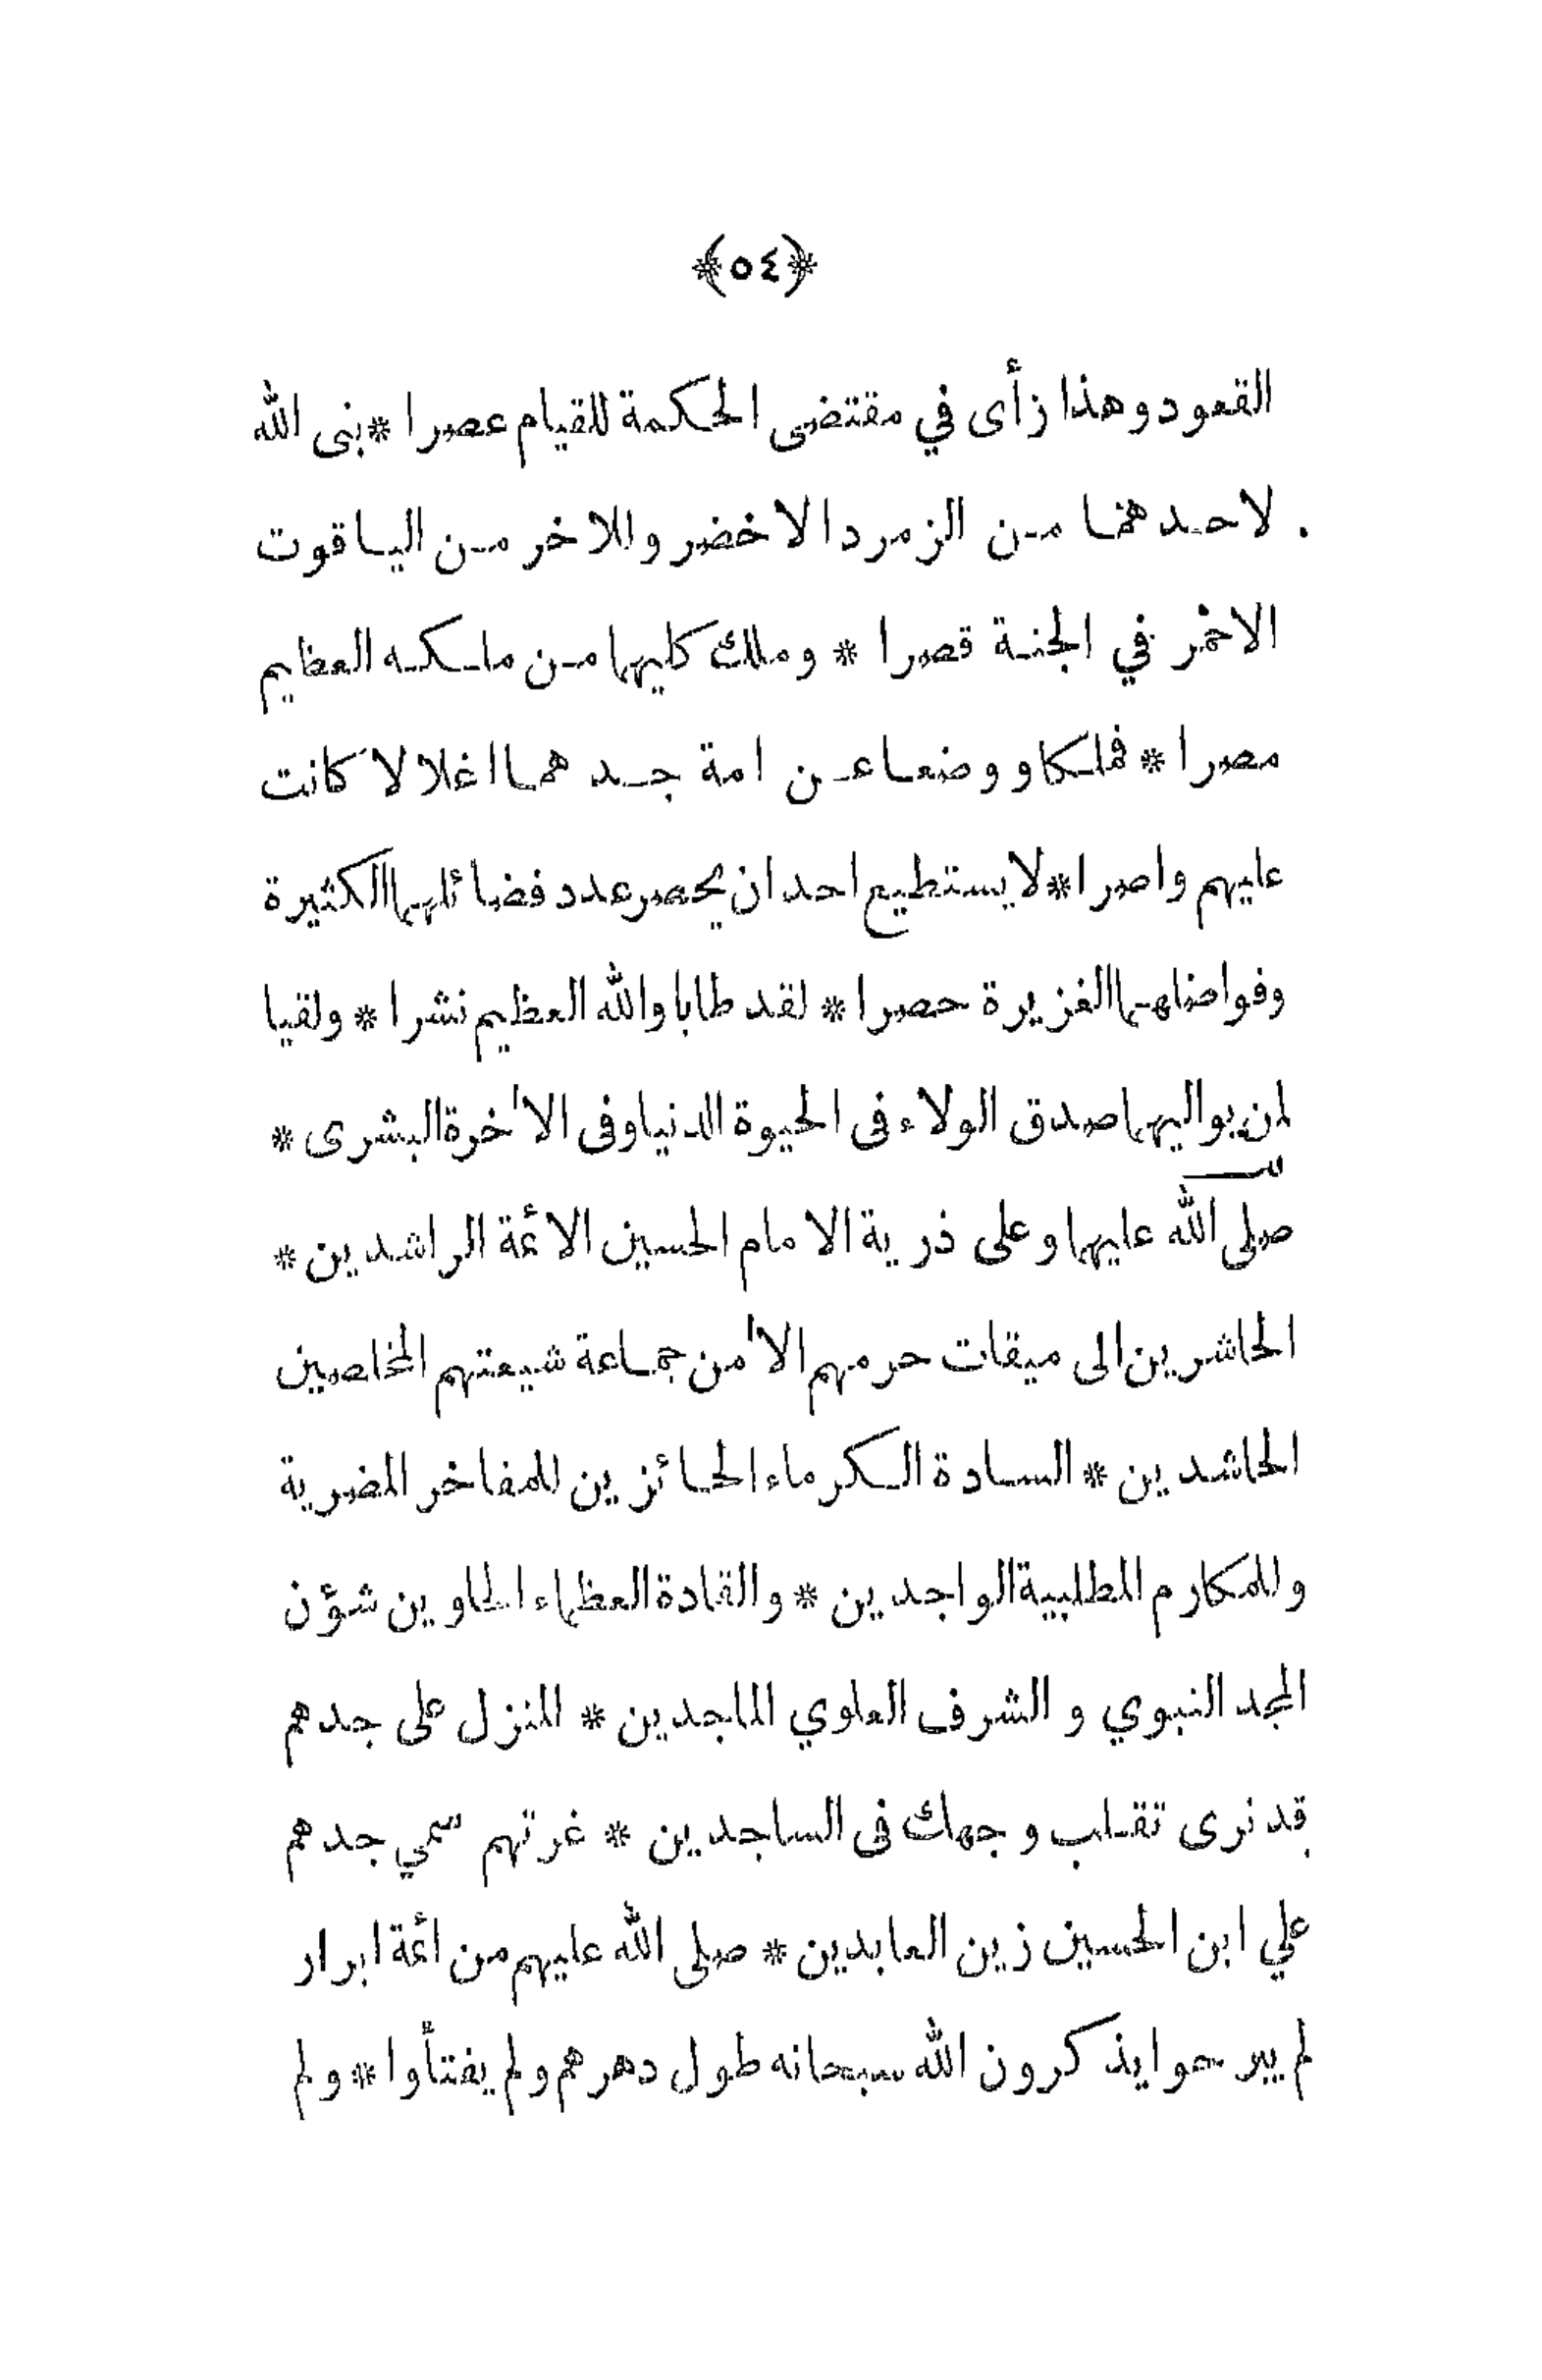 ﴿٥٤﴾
القعود وهذا زأى في مقتضى الحكمة للقيام عصرا * بنى الله
لاحد همّا من الزمرد الاخضر وللاخر من الياقوت
الاحمر في الجنة قصرا * وملك كليهما من ملكه العظيم
مصرا * فلكا ووضعا عن امة جد هما اغلالا كانت
عليهم واصرا * لا يستطيع احد ان يحصر عدد فضائلهما الكثيرة
وفواضلهما الغزيرة حصرا * لقد طابا والله العظيم نشرا * ولقيا
لمن يواليهما صدق الولاء فى الحيوة الدنيا وفى الأخرة البشرى *
صلى الله عليهما وعلى ذرية الامام الحسين الائمة الراشدين *
الحاشرين الى ميقات حرمهم الأمن جماعة شيعتهم المخلصين
الحاشدين * السادة الكرماء الحائزين للمفاخر المضرية
وللمكارم المطلبية الواجدين * والقادة العظماء الحاوين شؤن
المجد النبوي و الشرف العلوي الماجدين * المنزل على جدهم
قد نرى تقلب وجهك فى الساجدين * غرتهم سمي جدهم
علي ابن الحسين زين العابدين * صلى الله عليهم من ائمة ابرار
لم يبرحوا يذكرون الله سبحانه طول دهرهم ولم يفتأوا * ولم